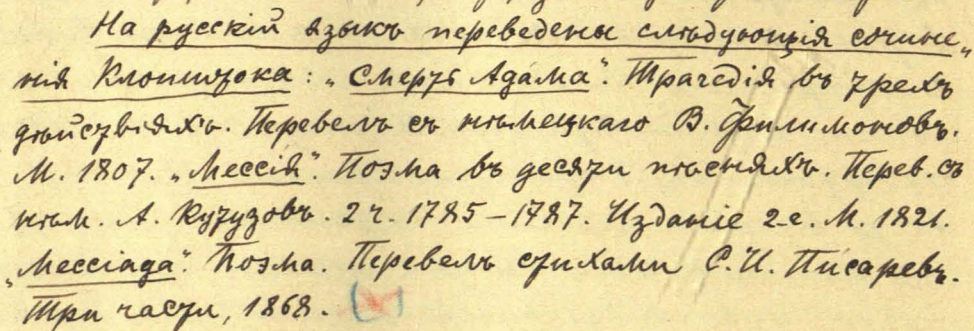 На русскій языкъ переведены слѣдующія сочине-
нія Клопштока: „Смерть Адама“. Трагедія въ трехъ
дѣйствіяхъ. Перевелъ съ нѣмецкаго В. Филимоновъ.
М. 1807. „Мессія“. Поэма въ десяти пѣсняхъ. Перев. съ
нѣм. А. Кутузовъ. 2 ч. 1785–1787. Изданіе 2-е. М. 1821.
„Мессіада“. Поэма. Перевелъ стихами С. И. Писаревъ.
Три части, 1868.